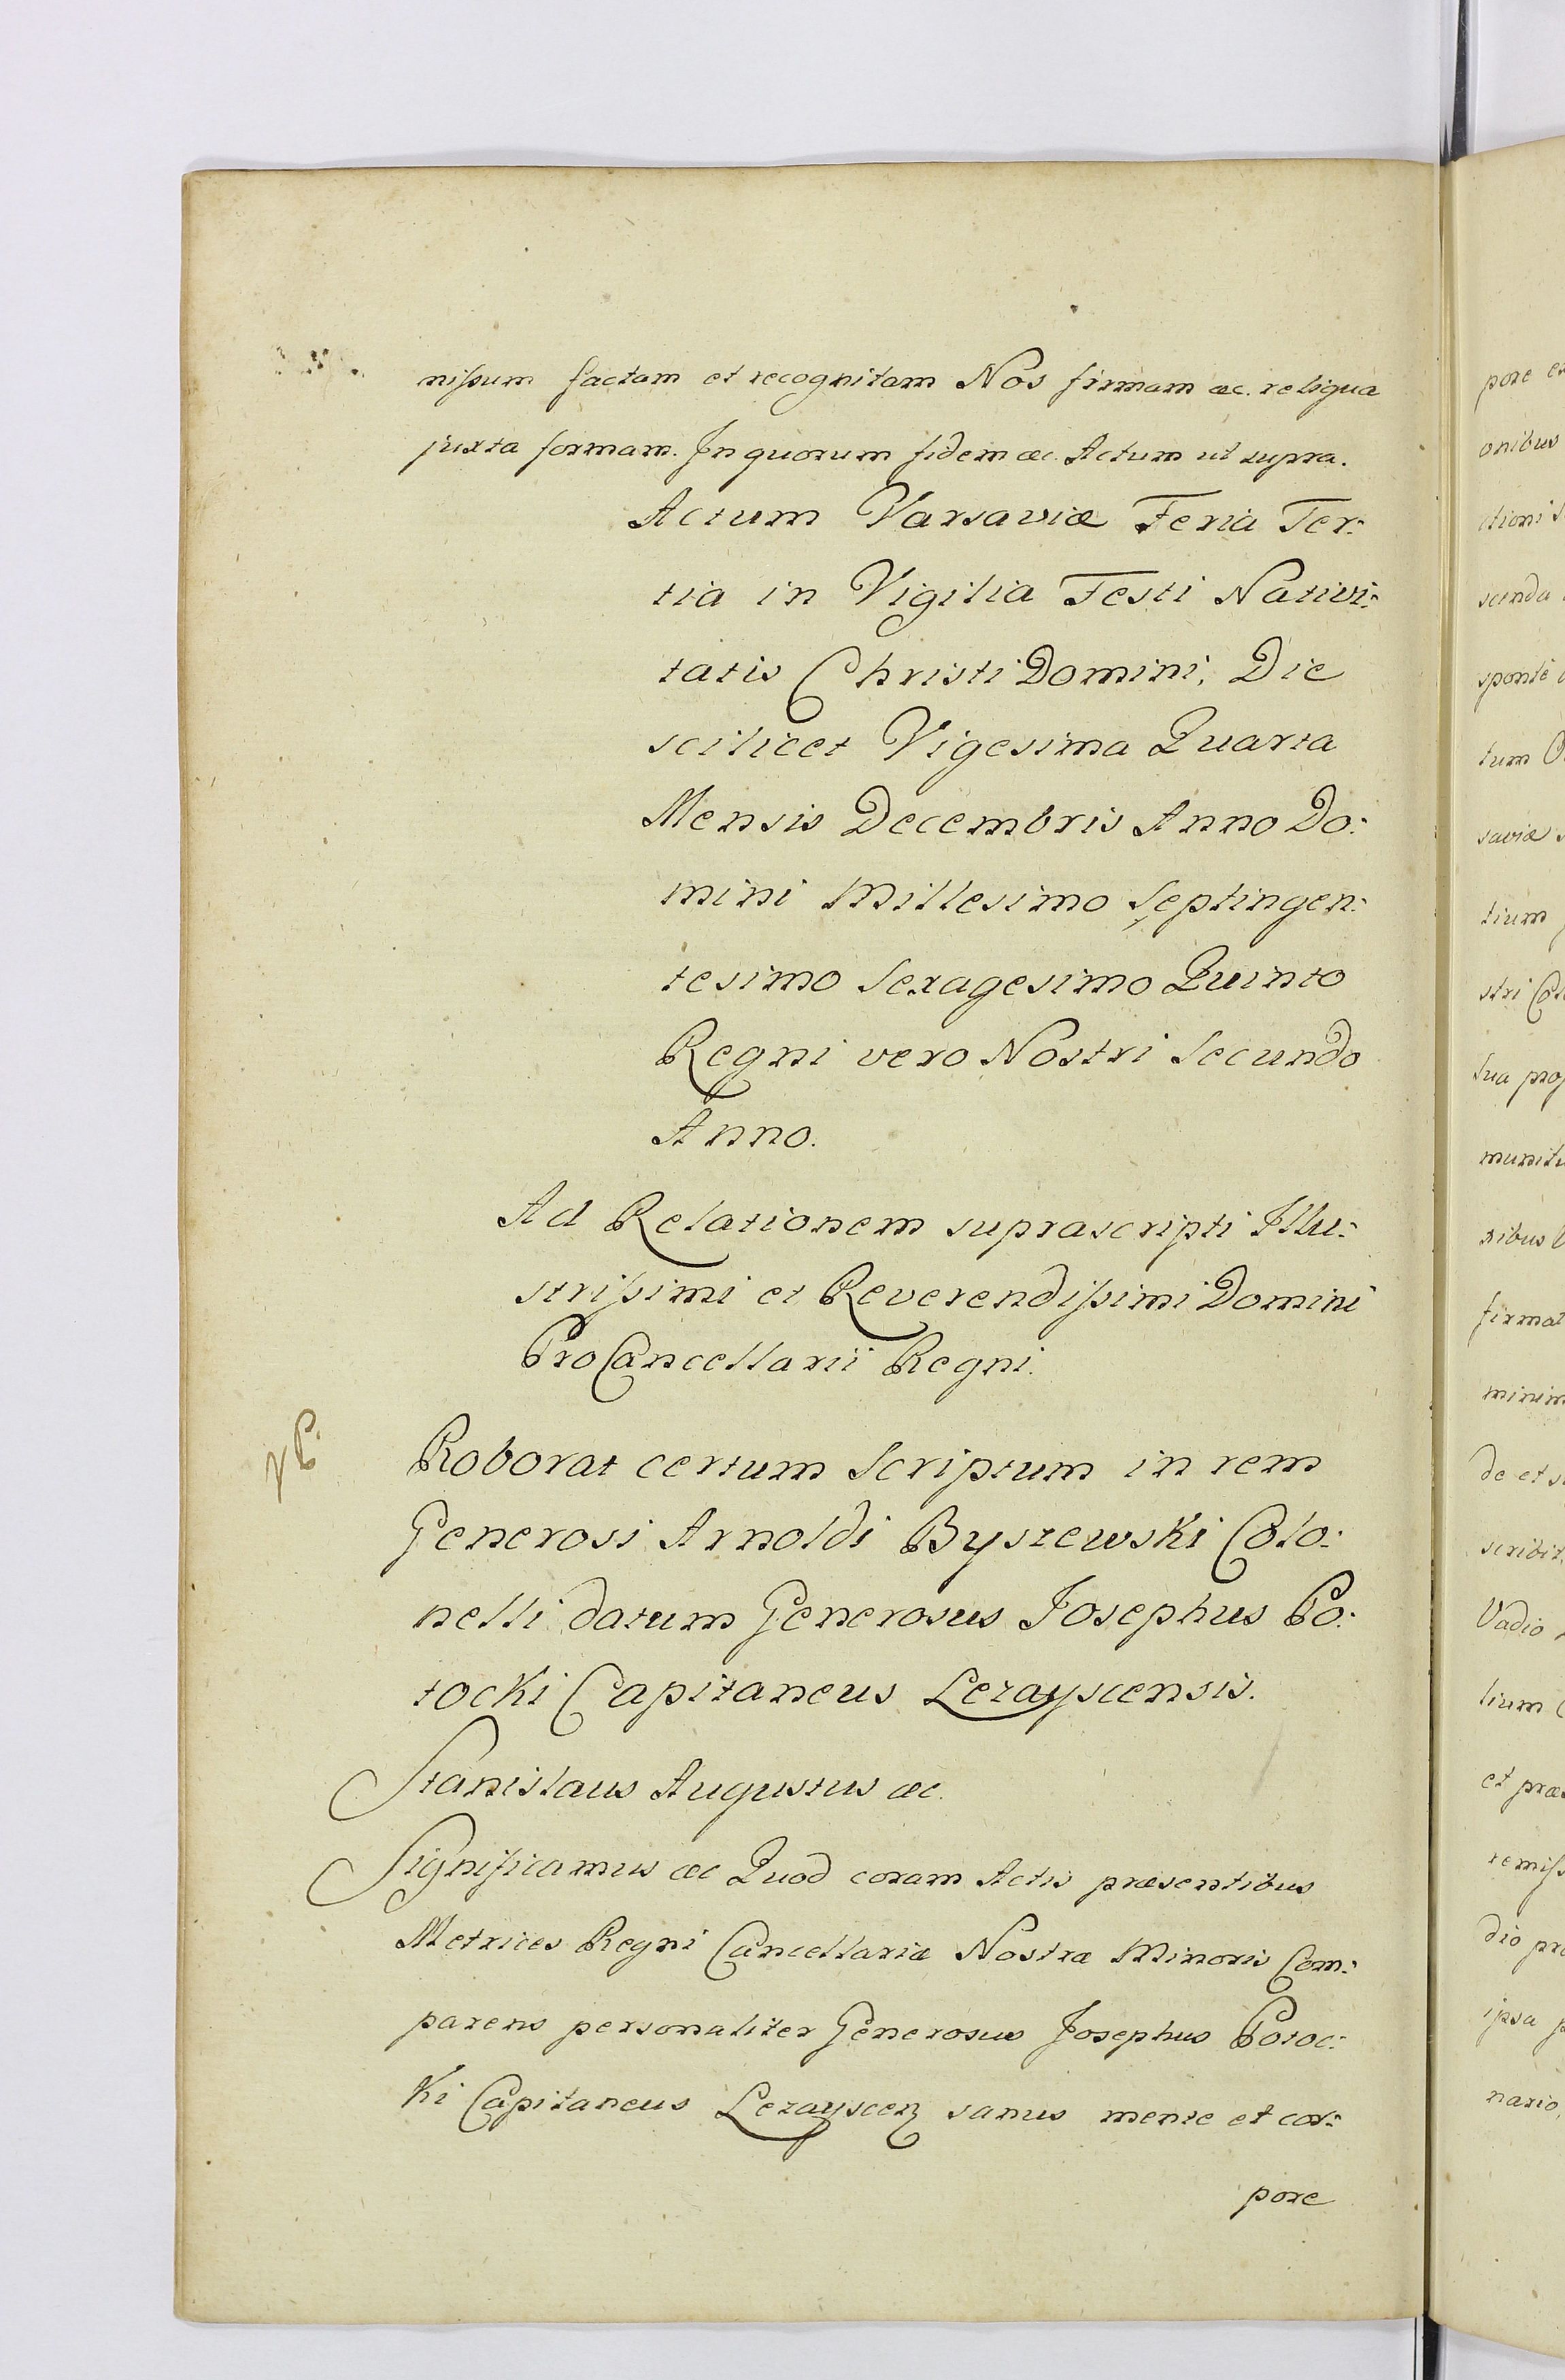 nissum factam et recognitam Nos firmam &c. reliqua
juxta formam. In quorum fidem &c. Actum ut supra.
Actum Varsaviæ Feria Ter:
tia in Vigilia Festi Nativi:
tatis Christi Domini, Die
scilicet Vigesima Quarta
Mensis Decembris Anno Do:
mini Millesimo Septingen:
tesimo Sexagesimo Quinto
Regni vero Nostri Secundo
Anno.
Ad Relationem suprascripti Illu:
strissimi et Reverendissimi Domini
ProCancellarii Regni.
Roborat certum Scriptum in rem
Generosi Arnoldi Byszewski Colo:
nelli datum Generosus Josephus Po:
tocki Capitaneus Lezayscensis.
Stanislaus Augustus &c.
Significamus &c Quod coram Actis præsentibus
Metrices Regni Cancellariæ Nostræ Minoris Com:
parens personaliter Generosus Josephus Potoc:
ki Capitaneus Lezayscen sanus mente et cor:
pore
pore
onibus
ctionis
scenda
sponte
tum
saviæ
tium
stri
sua
ribus
firmat
de et
Vadio
tium
et
dio
ipsa
nario